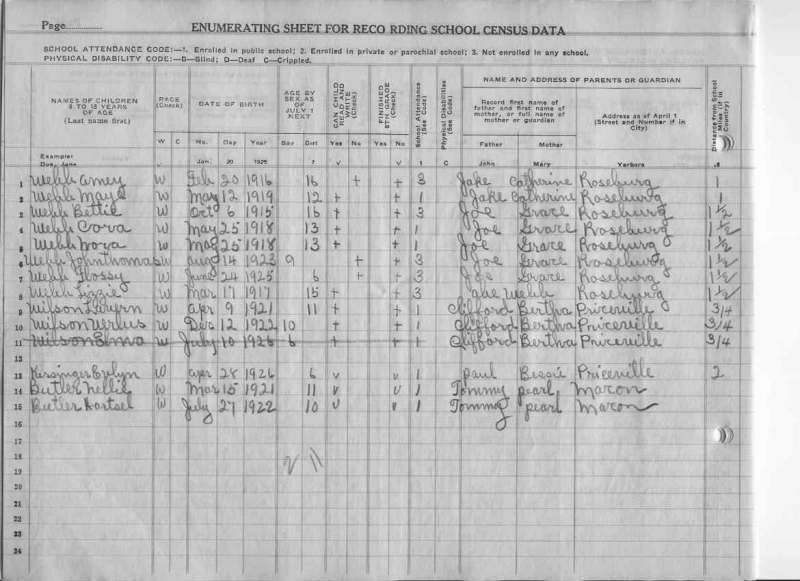 Page
ENUMERATING SHEET FOR RECO RDING SCHOOL CENSUS DATA
SCHOOL ATTENDANCE CODE:—1. Enrolled in public school; 2. Enrolled in private or parochial school; 3. Not enrolled in any school.
PHYSICAL DISABILITY CODE:—B—Blind; D—Deaf C—Crippled.
NAMES OF CHILDREN 6 TO 18 YEARS OF AGE (Last name first)
RACE (Check)
W C
DATE OF BIRTH
No. Day Year
AGE BY SEX AS OF JULY 1 NEXT
Boy Girl
CAN CHILD READ AND WRITE (Check)
Yes No
FINISHED 8TH GRADE (Check)
Yes No
School Attendance (See Code)
Physical Disabilities (See Code)
NAME AND ADDRESS OF PARENTS OR GUARDIAN
Record first name of father and first name of mother, or full name of mother or guardian
Father Mother
Address as of April 1 (Street and Number if in City)
Distance from School
Example: Doe, Jane v Jan. 20 1925 7 v v 1 C John Mary Yerbers .8
1 Webb Amey W Feb 20 1916 16 + + 3 Jake Catherine Roseburg 1
2 Webb Maye W May 12 1919 12 + + 1 Jake Catherine Roseburg 1
3 Webb Bettie W Oct 6 1915 16 + + 3 Joe Grace Roseburg 1 1/2
4 Webb Cora W May 25 1918 13 + + 1 Joe Grace Roseburg 1 1/2
5 Webb Nora W May 25 1918 13 + + 1 Joe Grace Roseburg 1 1/2
6 Webb Johnthomas W Aug 14 1923 9 + + 3 Joe Grace Roseburg 1 1/2
7 Webb Flossy W June 24 1925 6 + + 3 Joe Grace Roseburg 1 1/2
8 Webb Lizzie W Mar 17 1917 15 + + 3 Webb Roseburg 1 1/2
9 Wilson W Apr 9 1921 11 + + 1 Clifford Bertha Priceville 3/4
10 Wilson W Dec 12 1922 10 + + 1 Clifford Bertha Priceville 3/4
11 Wilson Elma W July 10 1926 6 + + 1 Clifford Bertha Priceville 3/4
12
13 Kessinger Evelyn W Apr 28 1926 6 v v 1 Paul Bessie Priceville 2
14 Butler Nellie W Mar 15 1921 11 v v 1 Tommy pearl Macon
15 Butler Hartsel W July 27 1922 10 v v 1 Tommy pearl Macon
16
17
18
19
20
21
22
23
24